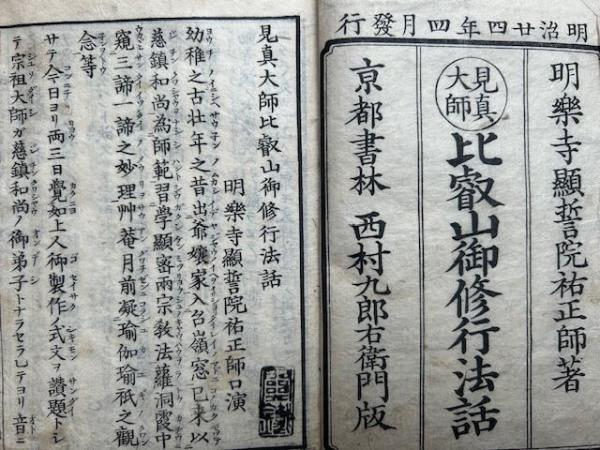 明治廿四年四月發行
明樂寺顯誓院祐正師著
見真大師
比叡山御修行法話
京都書林 西村九郎右衛門版
見真大師比叡山御修行法話
明樂寺顯誓院祐正師口演
幼稚之古壮年之昔出爺孃家入台嶺窓已来以
慈鎮和尚為師範習学顯密兩宗教法蘿洞霞中
窺三諦一諦之妙理艸菴月前凝瑜伽瑜祇之觀
念等
サテ今日ヨリ両三日覺如上人御製作ノ式文ヲ讃題トシ
テ宗祖大師ガ慈鎮和尚ノ御弟子トナラセラレテヨリ音ニ